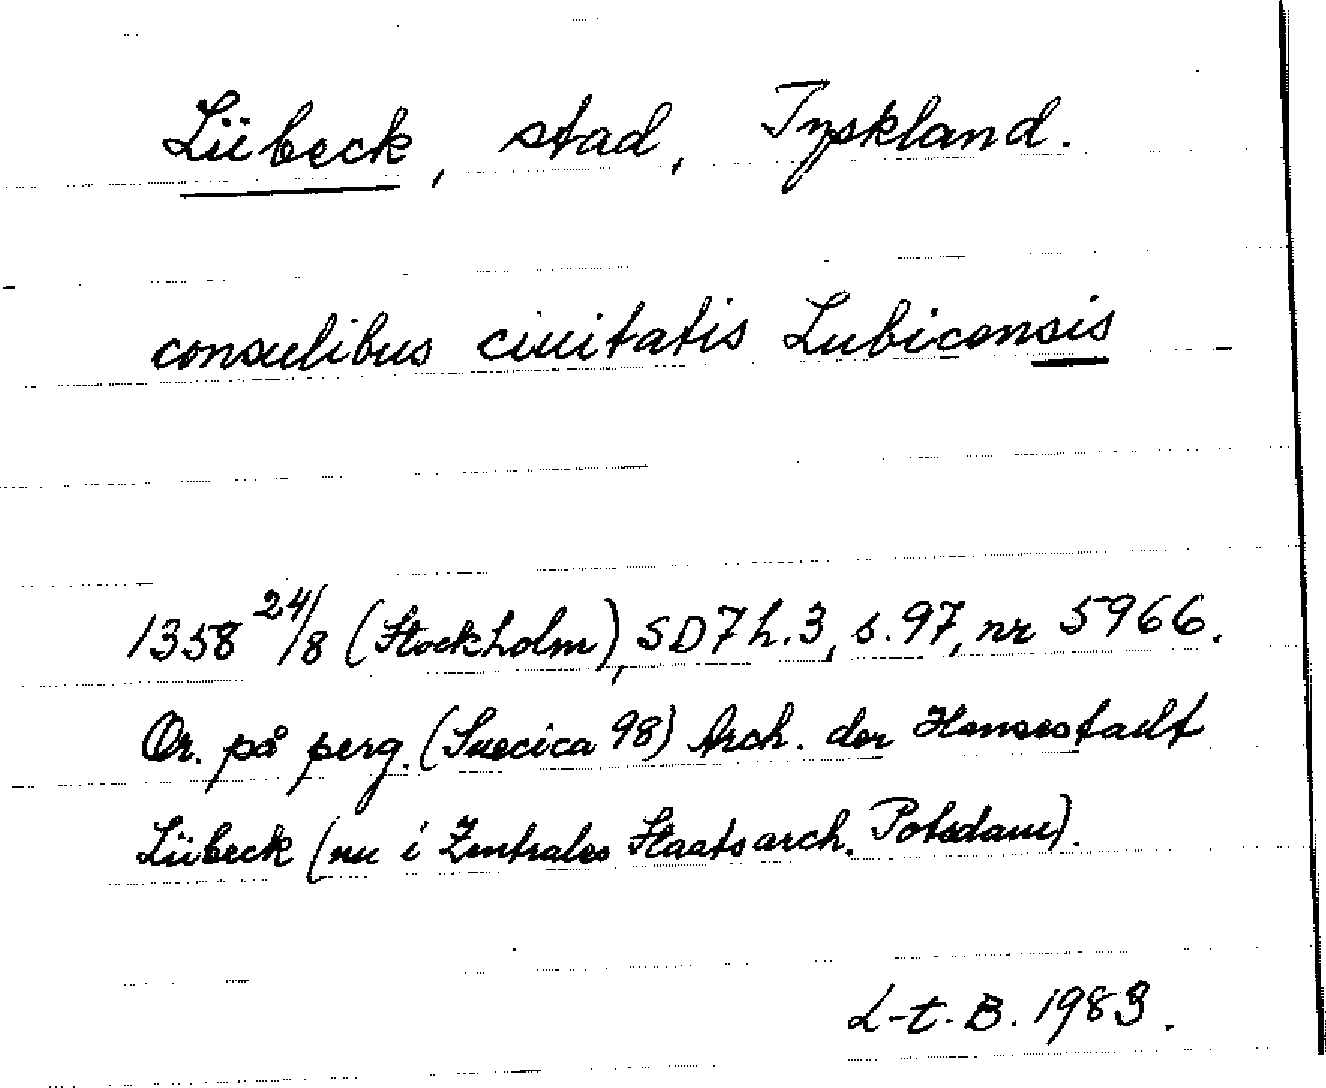 Lübeck, stad, Tyskland.
consulibus ciuitatis Lubicensis
1358 24/8 (Stockholm), SD7 h.3, s.97, nr 5966.
Or. på perg. (Suecica 98) Arch. der Hansestadt
Lübeck (nu i Zentrales Staatsarch. Potsdam).
L-t. B. 1983.